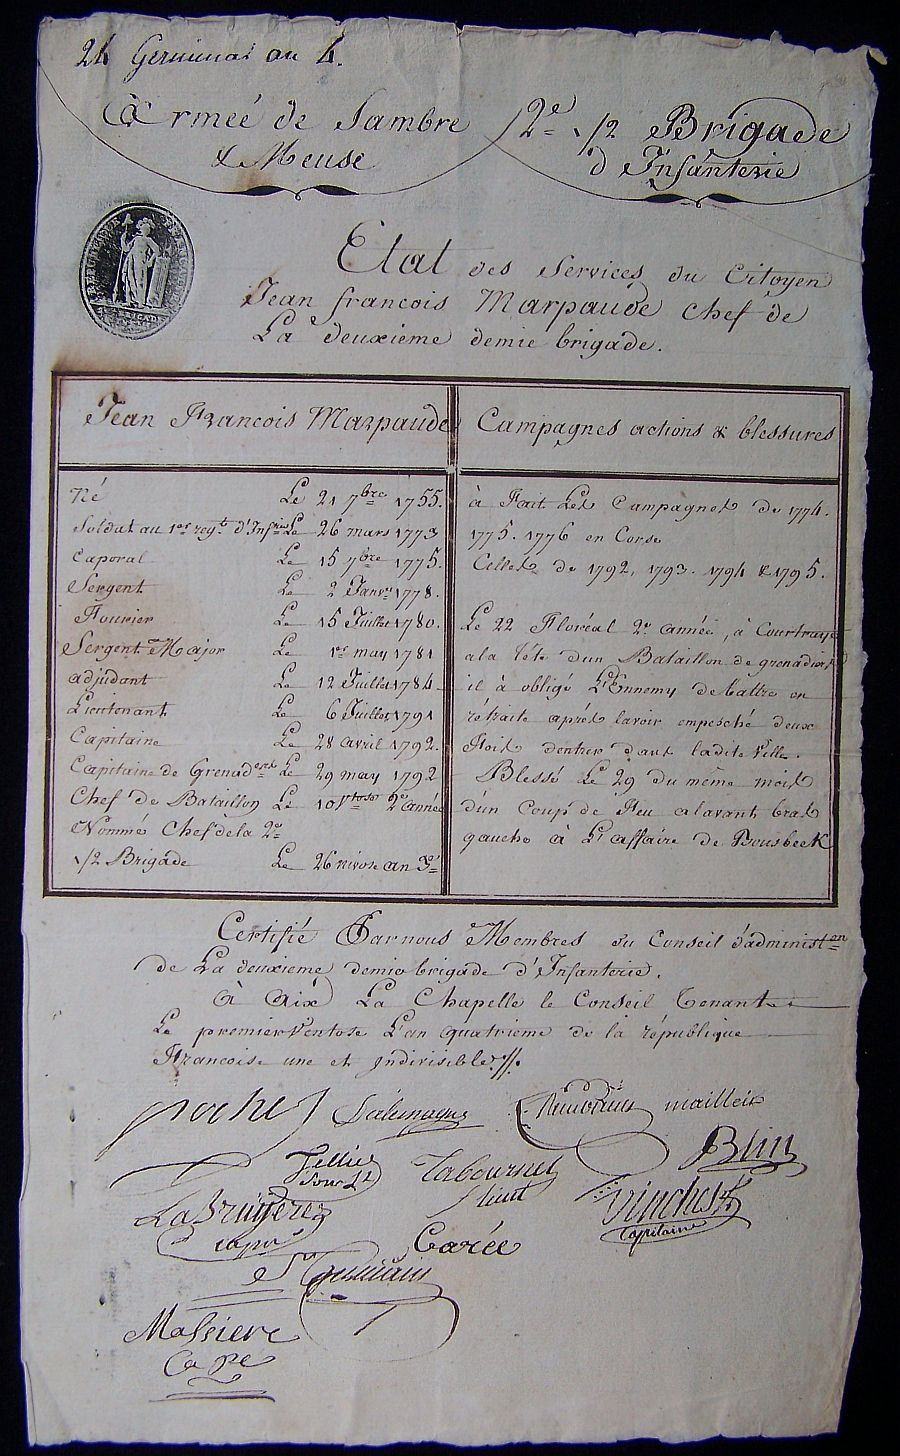 24 Germinal an 4.
Armeé de Sambre
& Meuse
2e 1/2 Brigade
d'Infanterie
Etat des Services du Citoyen
Jean francois Marpaude chef de
La deuxieme demie brigade.
Jean Francois Marpaude
Né Le 21 7bre 1755.
Soldat au 1er regt. d'Infrie Le 26 mars 1773
Caporal Le 15 7bre 1775.
Sergent Le 2 Janvr 1778.
Fourier Le 15 Juillet 1780.
Sergent Major Le 1er may 1781
adjudant Le 12 Juillet 1784
Lieutenant Le 6 Juillet 1791
Capitaine Le 28 avril 1792.
Capitaine de Grenadiers Le 29 may 1792
Chef de Bataillon Le 10 Vtose 2e année
Nommé Chef de la 2e
1/2 Brigade Le 26 nivose an 3e
Campagnes actions & blessures
à Fait Les Campagnes de 1774.
1775. 1776 en Corse
Celles de 1792, 1793. 1794 & 1795.
Le 22 Floréal 2e année, à Courtraye
ala tête dun Bataillon de grenadiers
il à obligé L'Ennemy de battre en
rétraite aprés lavoir empesché deux
Fois dentrer dans ladite Ville.
Blessé Le 29 du même mois
d'un Coup de Feu alavant bras
gauche à L'affaire de Bousbeek
Certifié Par nous Membres du Conseil d'administon
de La deuxieme demie brigade d'Infanterie.
à Aix La Chapelle le Conseil Tenant
Le premier Ventose L'an quatrieme de la république
Francoise une et Indivisible
Tellier
Sous Lt
Labournet
Lieut
mailleix
Blin
LaBruÿere
Carée
capitaine
Massiere
Cape